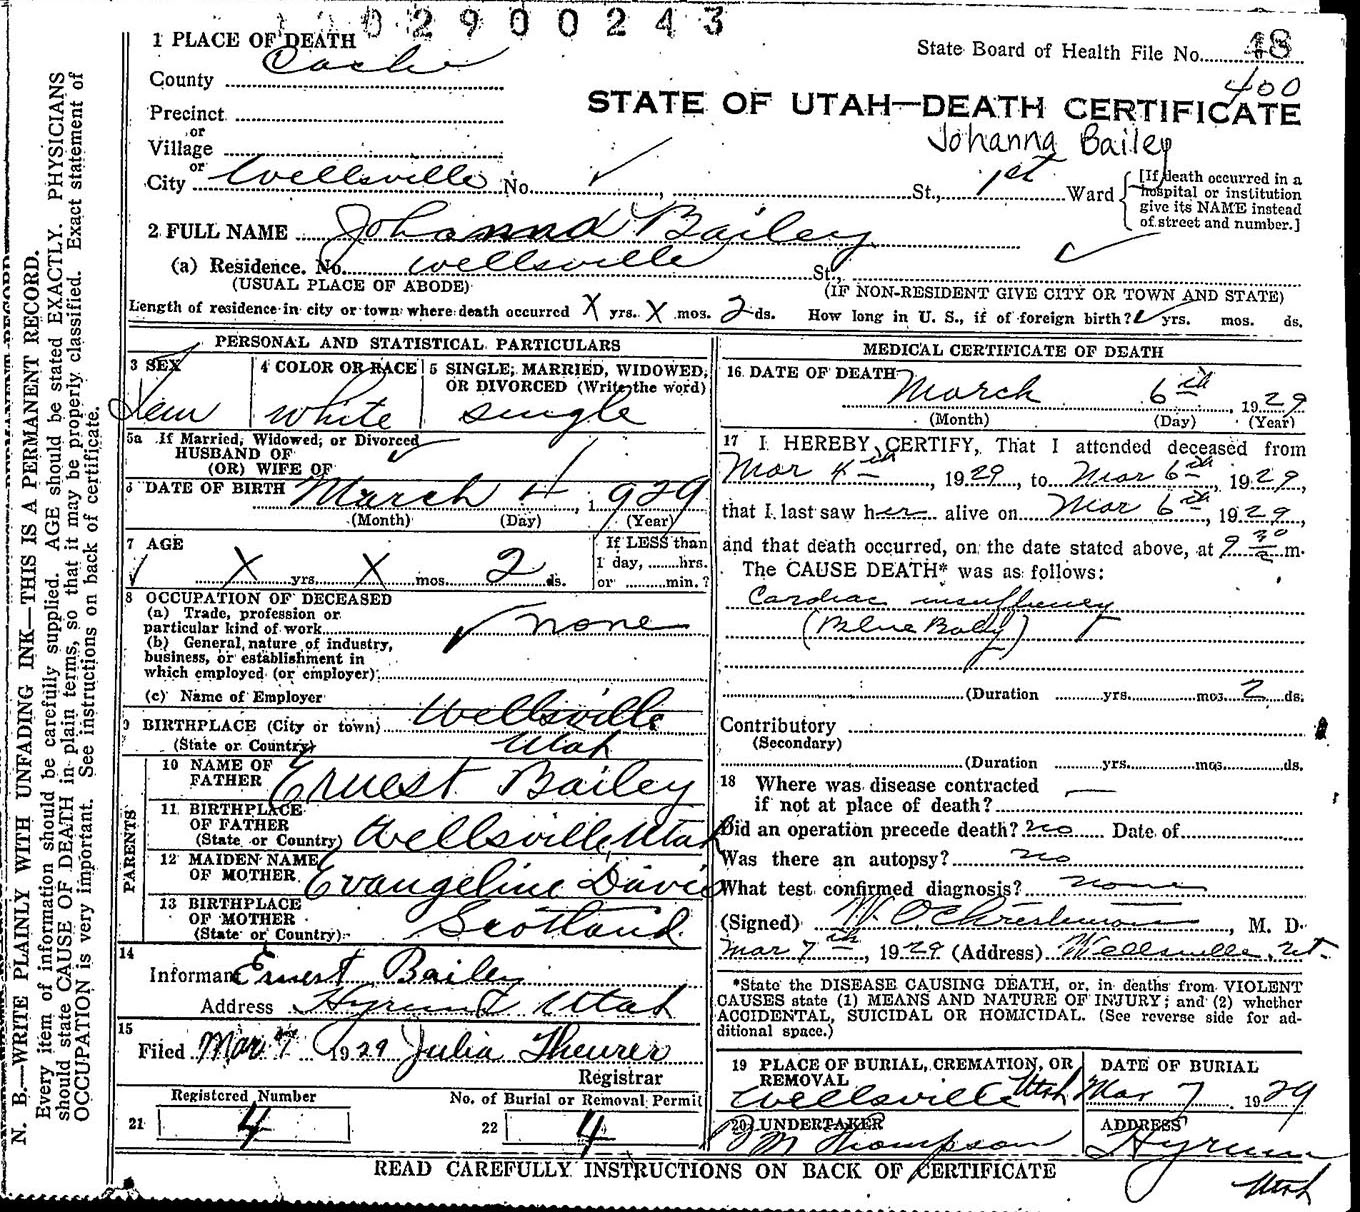 02900243
1 PLACE OF DEATH
State Board of Health File No. 48
County Cache
400
Precinct
STATE OF UTAH—DEATH CERTIFICATE
or
Village
Johanna Bailey
or
City Wellsville No. ✓, St., 1st Ward
[If death occurred in a
hospital or institution
give its NAME instead
of street and number.]
2 FULL NAME Johanna Bailey
(a) Residence. No. Wellsville St., ✓
(USUAL PLACE OF ABODE)
(IF NON-RESIDENT GIVE CITY OR TOWN AND STATE)
Length of residence in city or town where death occurred X yrs. X mos. 2 ds. How long in U. S., if of foreign birth? ✓ yrs. mos. ds.
PERSONAL AND STATISTICAL PARTICULARS
3 SEX
Fem
4 COLOR OR RACE
White
5 SINGLE, MARRIED, WIDOWED,
OR DIVORCED (Write the word)
single
5a If Married, Widowed, or Divorced
HUSBAND OF
(OR) WIFE OF
6 DATE OF BIRTH March 4, 1929
(Month) (Day) (Year)
7 AGE
X yrs. X mos. 2 ds.
If LESS than
1 day, ......hrs.
or ......min.?
8 OCCUPATION OF DECEASED
(a) Trade, profession or
particular kind of work ✓ none
(b) General nature of industry,
business, or establishment in
which employed (or employer)
(c) Name of Employer
9 BIRTHPLACE (City or town) Wellsville
(State or Country) Utah
PARENTS
10 NAME OF
FATHER Ernest Bailey
11 BIRTHPLACE
OF FATHER
(State or Country) Wellsville Utah
12 MAIDEN NAME
OF MOTHER Evangeline Davis
13 BIRTHPLACE
OF MOTHER
(State or Country) Scotland
14
Informant Ernest Bailey
Address Hyrum Utah
15
Filed Mar 7 1929 Julia Theurer
Registrar
Registered Number
21 4
No. of Burial or Removal Permit
22 4
MEDICAL CERTIFICATE OF DEATH
16 DATE OF DEATH
March 6th, 1929
(Month) (Day) (Year)
17 I HEREBY CERTIFY, That I attended deceased from
Mar 4th, 1929, to Mar 6th, 1929,
that I last saw her alive on Mar 6th, 1929,
and that death occurred, on the date stated above, at 9 30 a m.
The CAUSE DEATH* was as follows:
Cardiac insufficiency
(Blue Baby)
(Duration yrs. mos. 2 ds.
Contributory
(Secondary)
(Duration yrs. mos. ds.
18 Where was disease contracted
if not at place of death?
Did an operation precede death? no Date of
Was there an autopsy? no
What test confirmed diagnosis? none
(Signed) W. O. Christensen, M. D.
Mar 7th, 1929 (Address) Wellsville, Ut.
*State the DISEASE CAUSING DEATH, or, in deaths from VIOLENT
CAUSES state (1) MEANS AND NATURE OF INJURY; and (2) whether
ACCIDENTAL, SUICIDAL OR HOMICIDAL. (See reverse side for ad-
ditional space.)
19 PLACE OF BURIAL, CREMATION, OR
REMOVAL
Wellsville Utah
DATE OF BURIAL
Mar 7 1929
20 UNDERTAKER
Thompson
ADDRESS
Hyrum
Utah
READ CAREFULLY INSTRUCTIONS ON BACK OF CERTIFICATE
N. B.—WRITE PLAINLY WITH UNFADING INK—THIS IS A PERMANENT RECORD.
Every item of information should be carefully supplied. AGE should be stated EXACTLY. PHYSICIANS
should state CAUSE OF DEATH in plain terms, so that it may be properly classified. Exact statement of
OCCUPATION is very important. See instructions on back of certificate.